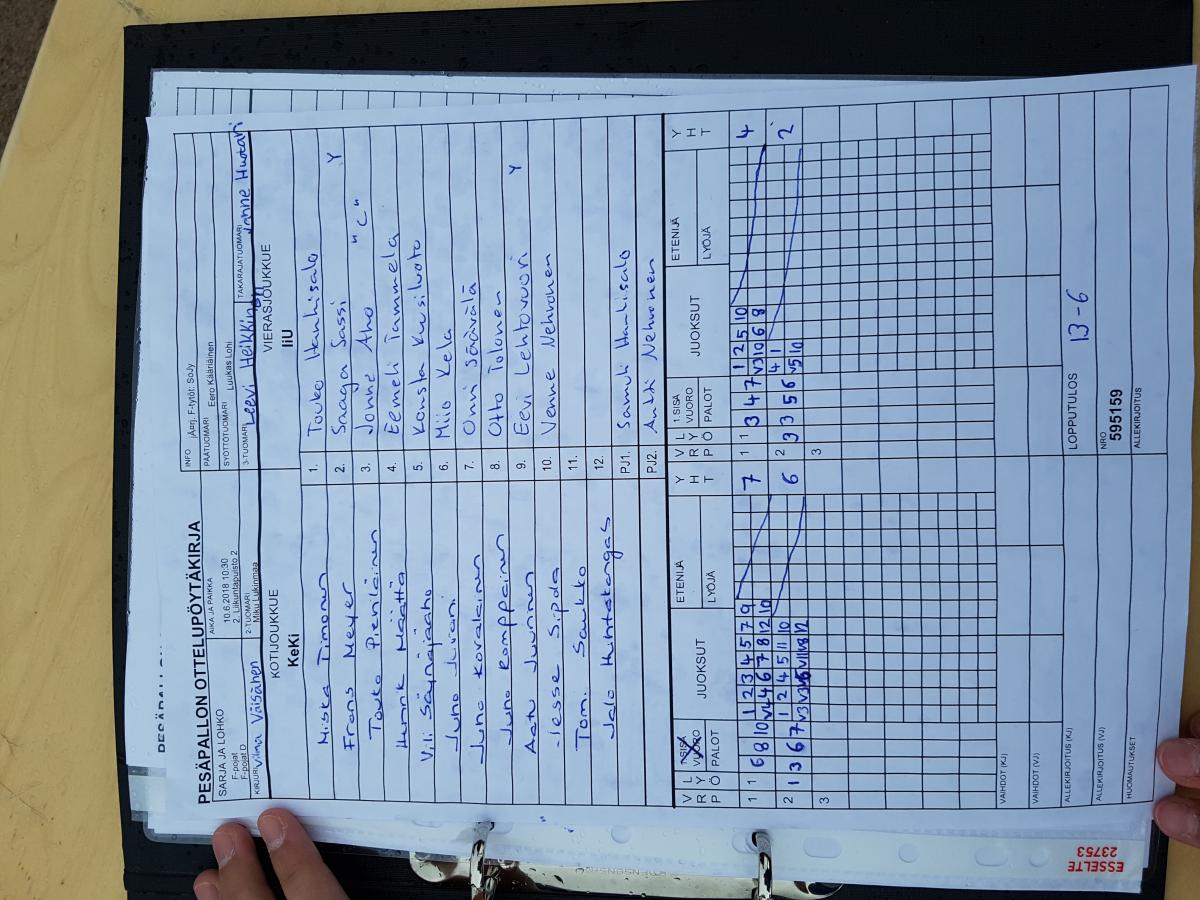 PESÄPALLON OTTELUPÖYTÄKIRJA
SARJA JA LOHKO
F-pojat
F-pojat D
AIKA JA PAIKKA
10.6.2018 10:30
2. Liikuntapuisto 2
INFO jAorj. F-tytöt: SoJy
PÄÄTUOMARI Eero Kääriäinen
SYÖTTÖTUOMARI Luukas Lohi
KIRJURI Vilma Väisänen
2-TUOMARI
Miku Lukinmaa
3-TUOMARI Leevi Heikkinen
TAKARAJATUOMARI Janne Huotari
KOTIJOUKKUE
KeKi
VIERASJOUKKUE
IiU
Miska Timonen 1. Touko Hanhisalo
Frans Meyer 2. Saaga Sassi Y
Touko Pienläinen 3. Jonne Aho "C"
Henrik Määttä 4. Eemeli Tammela
Vili Säynäjäaho 5. Konsta Kuusiluoto
Juho Juvani 6. Miio Kela
Juho Kovalainen 7. Onni Säävälä
Juho Romppainen 8. Otto Tolonen
Aatu Juuninen 9. Eevi Lehtovuori Y
Jesse Sipola 10. Venne Nehvonen
Tomi Saukko 11.
Jalo Huhtakangas 12.
PJ1. Samuli Hanhisalo
PJ2. Antti Nehvonen
V R P L Y Ö 1.SISÄ VUORO PALOT JUOKSUT ETENIJÄ LYÖJÄ Y H T
V R P L Y Ö 1.SISÄ VUORO PALOT JUOKSUT ETENIJÄ LYÖJÄ Y H T
1 1 6 8 10 1 2 3 4 5 7 9 7 1 1 3 4 7 1 2 5 10 4
V4 4 6 7 8 12 10 V3 10 6 8
2 1 3 6 7 1 2 4 5 11 10 6 2 3 3 5 6 4 1 2
V5 10
3 3
VAIHDOT (KJ)
VAIHDOT (VJ)
ALLEKIRJOITUS (KJ) LOPPUTULOS 13-6
ALLEKIRJOITUS (VJ) NRO 595159
HUOMAUTUKSET ALLEKIRJOITUS
ESSELTE
23753